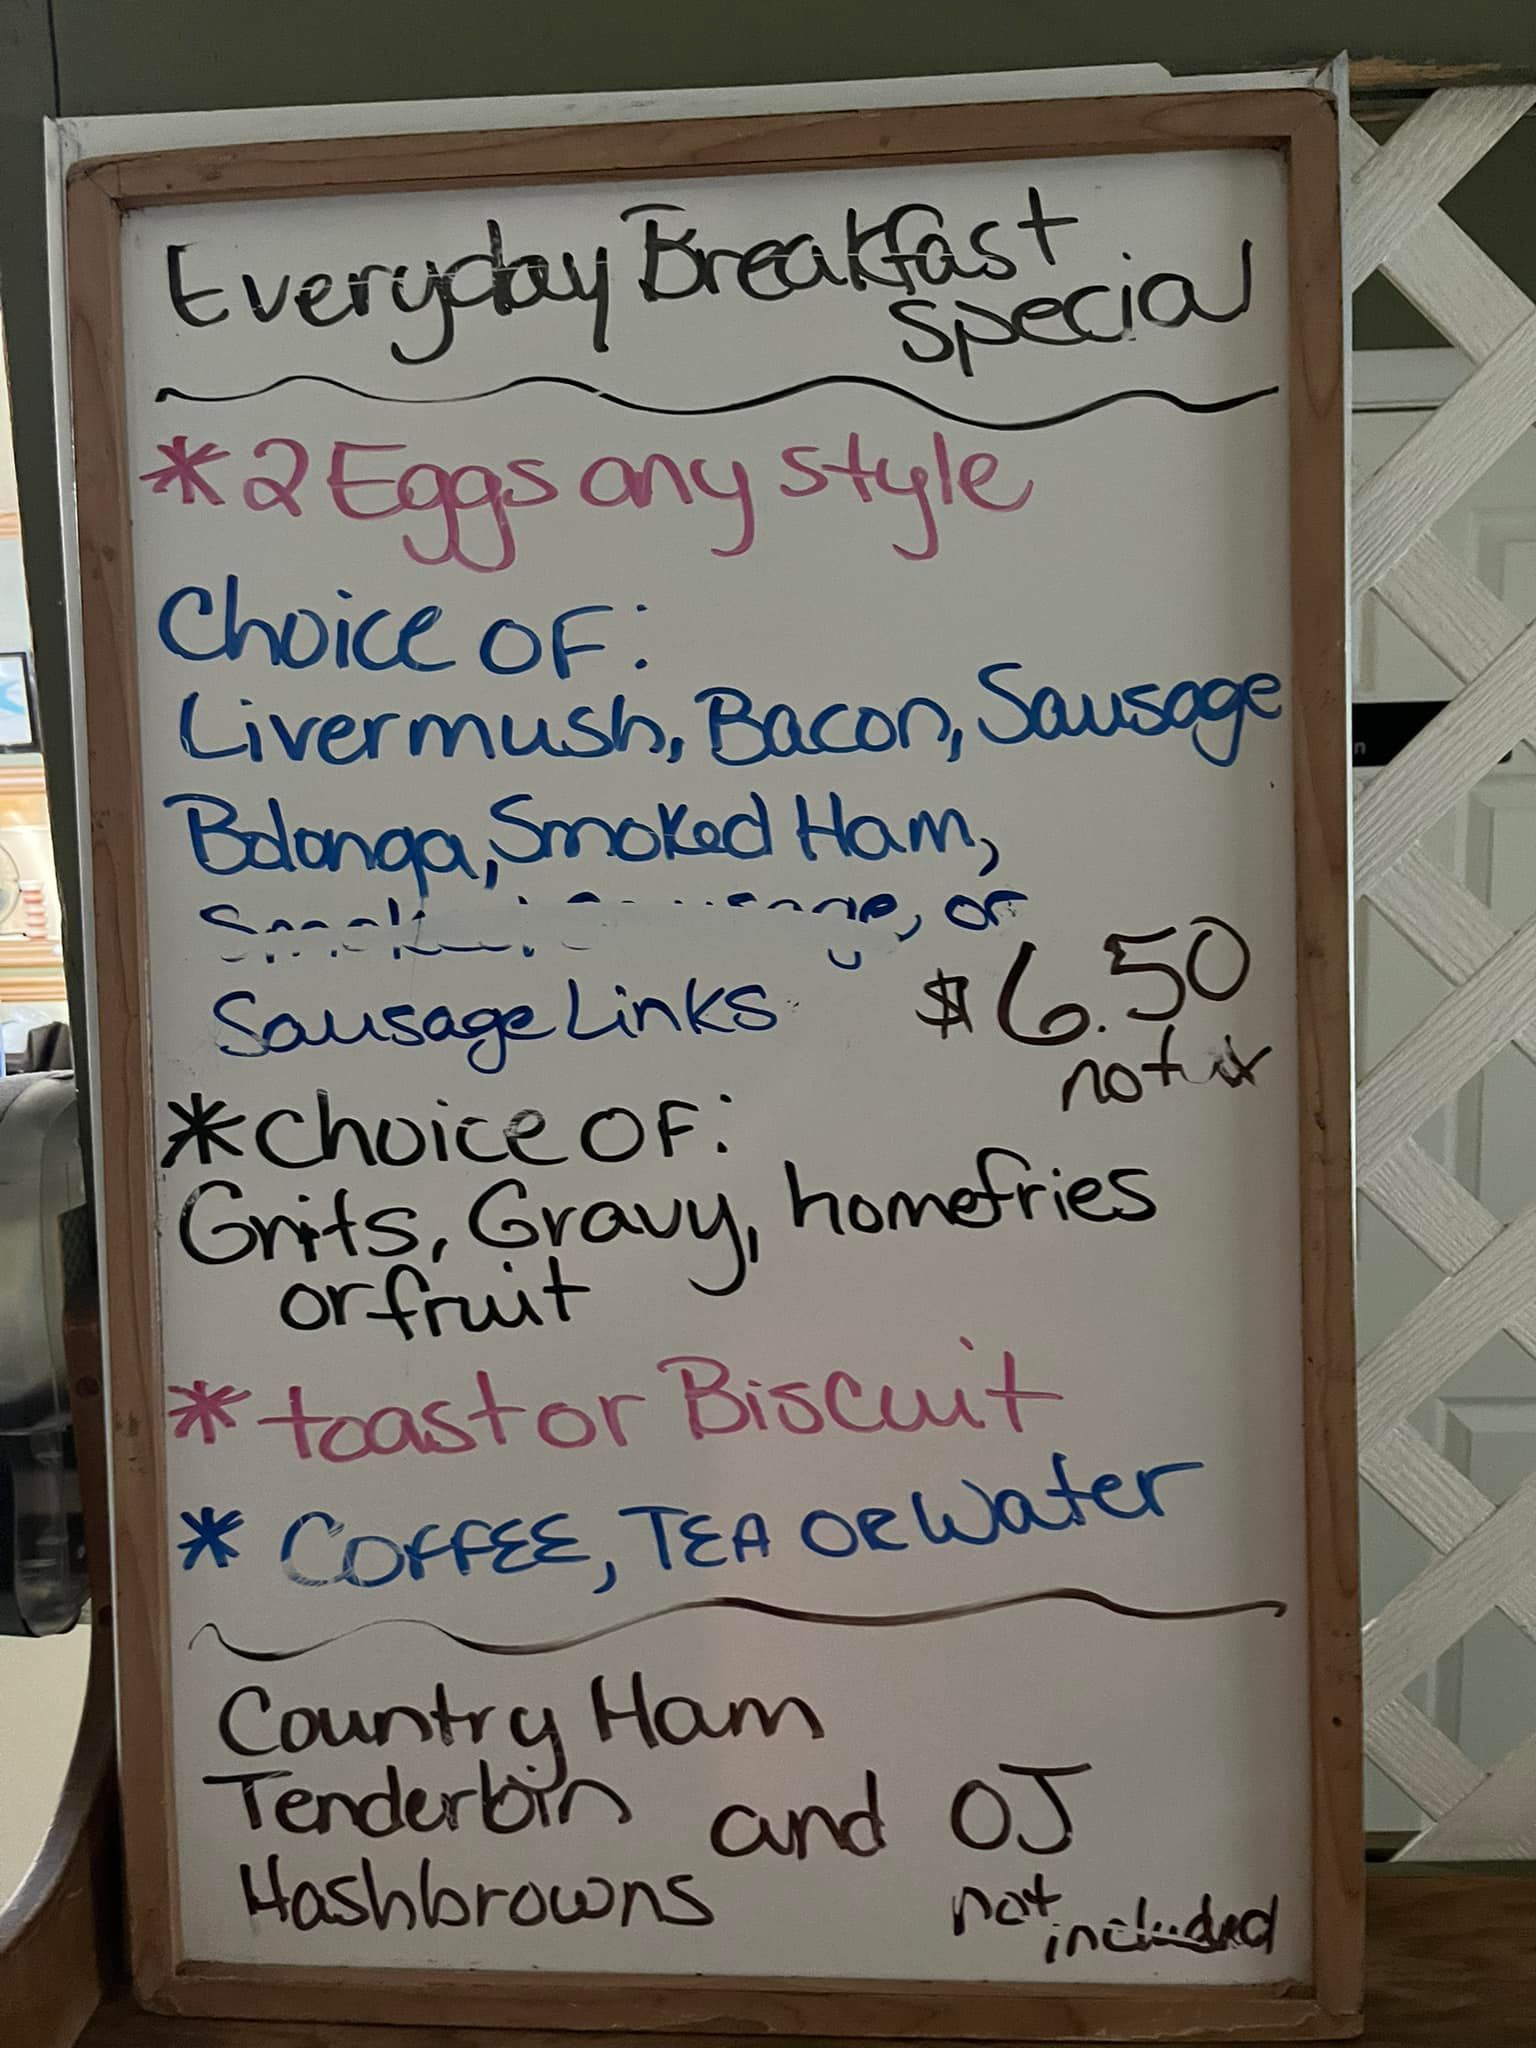 Everyday Breakfast
special
*2 Eggs any style
Choice OF:
Livermush, Bacon, Sausage
Bolonga, Smoked Ham,
Smoked Sausage, or
Sausage Links
$6.50
not
*Choice OF:
Grits, Gravy, homefries
or fruit
*toast or Biscuit
* COFFEE, TEA OR Water
Country Ham
Tenderloin and OJ
Hashbrowns
not
included